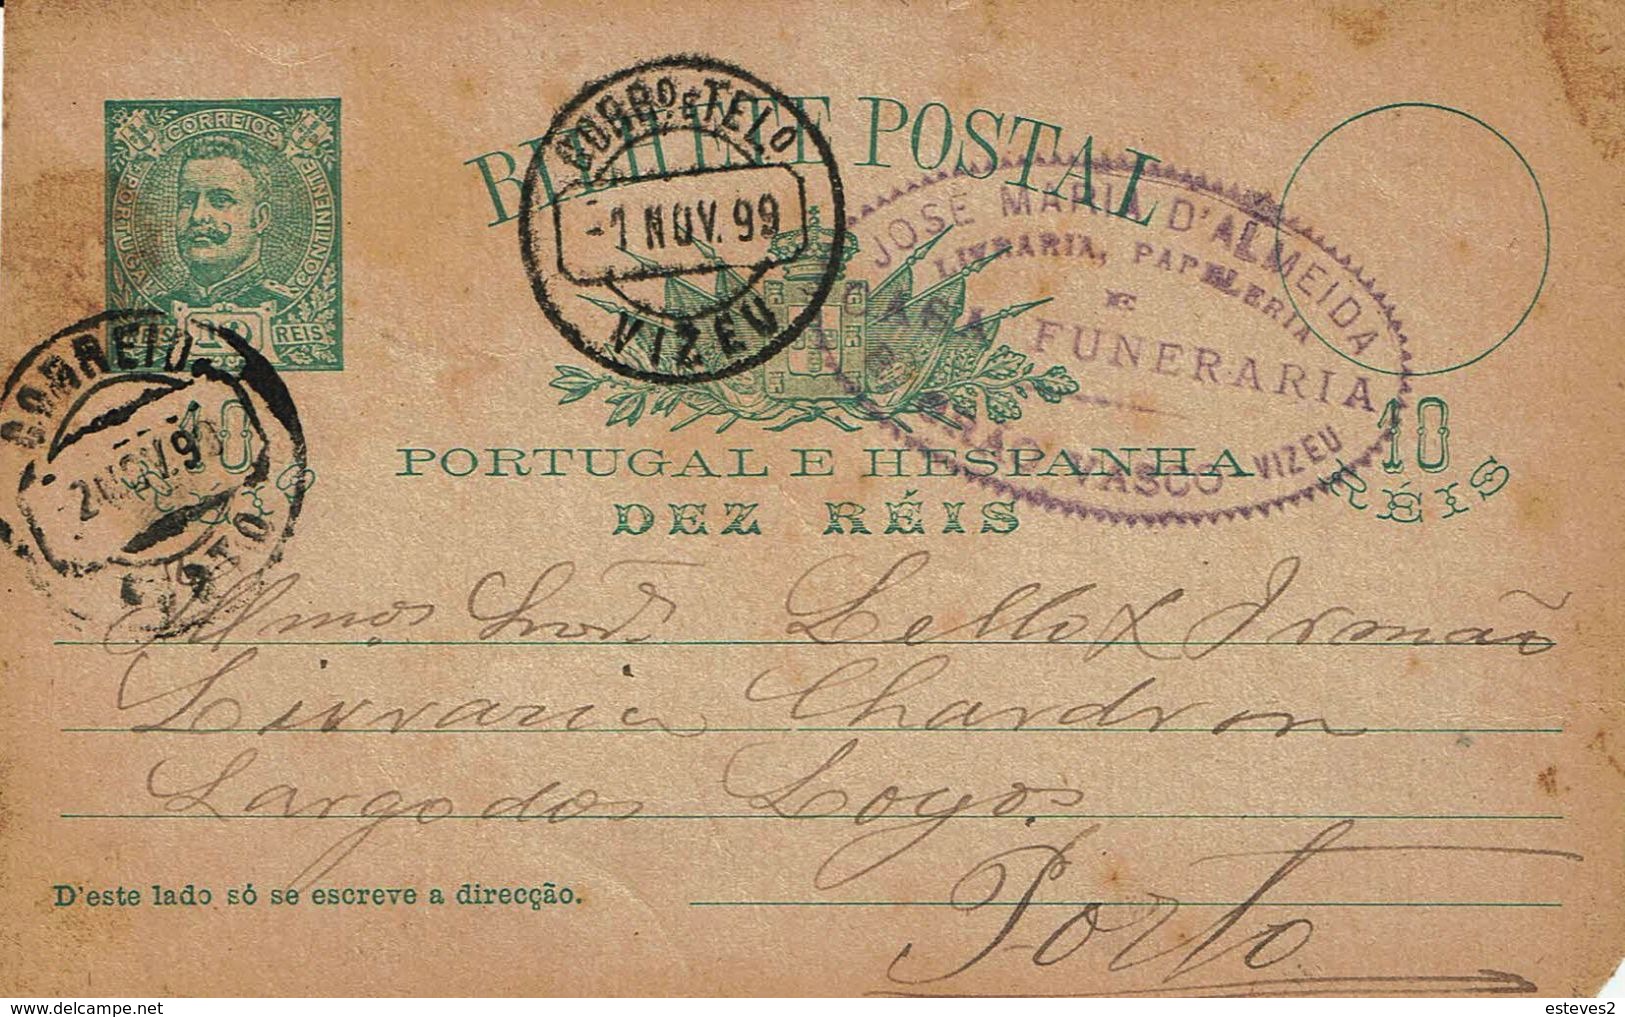 BILHETE POSTAL
CORREIOS
PORTUGAL
CONTINENTE
REIS
CORRO E TELO
-1 NOV. 99
VIZEU
JOSÉ MARIA D'ALMEIDA
LIVRARIA, PAPELERIA
E
CASA FUNERARIA
GRÃO VASCO - VIZEU
CORREIO
2 NOV. 99
PORTO
10
RÉIS
10
RÉIS
PORTUGAL E HESPANHA
DEZ RÉIS
Illmos Snrs Lello & Irmão
Livraria Chardron
Largo dos Loyos
Porto
D'este lado só se escreve a direcção.
esteves2